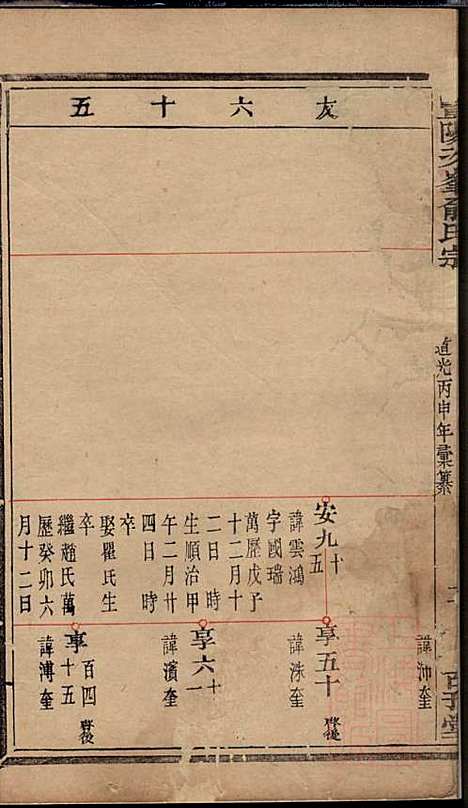 友六十五
道光丙申年彙纂
百子堂
安九十五
諱雲鴻
字國瑞
萬歷戊子
十二月十
二日時
生順治甲
午二月廿
四日時
卒
娶瞿氏生
卒
繼趙氏萬
歷癸卯六
月十二日
諱沛奎
享五十
諱洙奎
享六十一
諱濱奎
享百四十五
諱溥奎